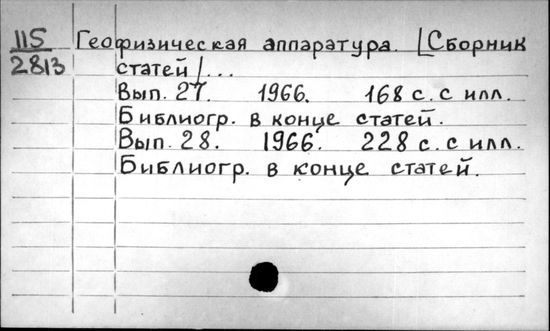 115 Геофизическая аппаратура. [Сборник
2813 статей]...
Вып. 27. 1966. 168 с. с илл.
Библиогр. в конце статей.
Вып. 28. 1966. 228 с. с илл.
Библиогр. в конце статей.